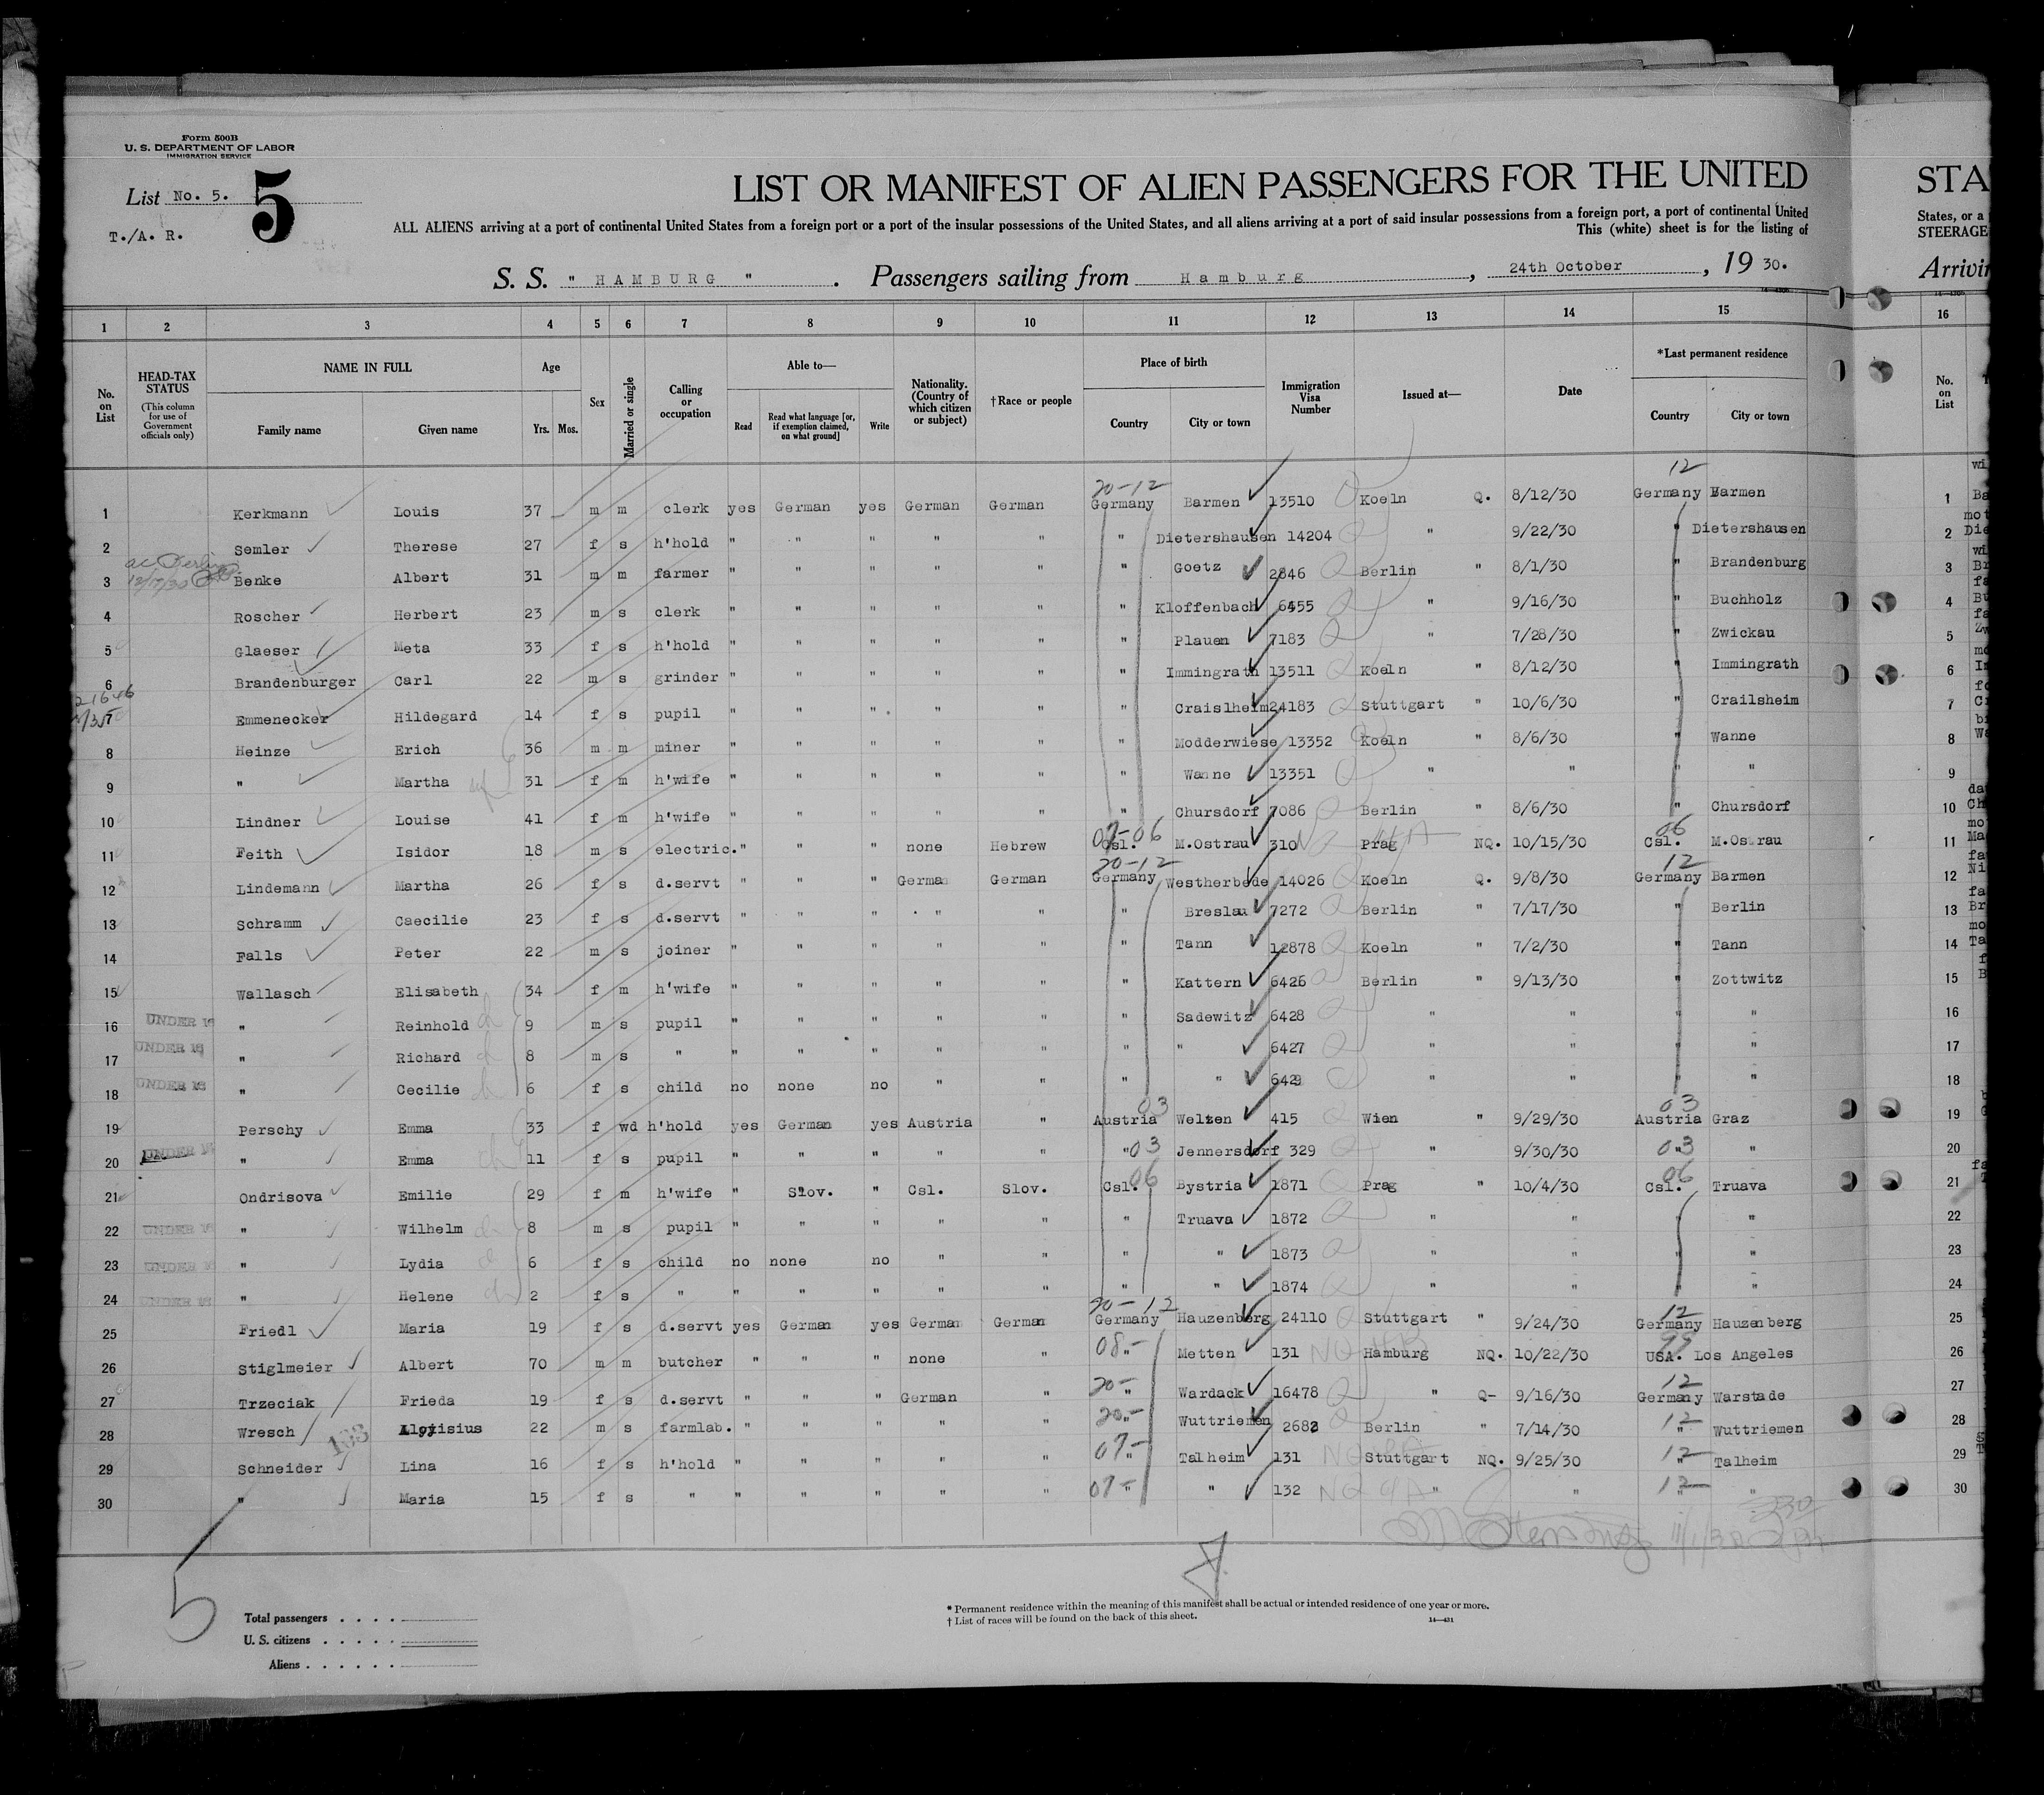 Form 500B
U. S. DEPARTMENT OF LABOR
IMMIGRATION SERVICE
List No. 5.
5
T./A. R.
LIST OR MANIFEST OF ALIEN PASSENGERS FOR THE UNITED
STA
ALL ALIENS arriving at a port of continental United States from a foreign port or a port of the insular possessions of the United States, and all aliens arriving at a port of said insular possessions from a foreign port, a port of continental United
States, or a
This (white) sheet is for the listing of
STEERAGE
S. S. " HAMBURG " . Passengers sailing from Hamburg , 24th October , 19 30.
Arrivin
1 2 3 4 5 6 7 8 9 10 11 12 13 14 15 16
No. on List
HEAD-TAX STATUS
(This column for use of Government officials only)
NAME IN FULL
Family name Given name
Age
Yrs. Mos.
Sex
Married or single
Calling or occupation
Able to—
Read
Read what language [or, if exemption claimed, on what ground]
Write
Nationality. (Country of which citizen or subject)
†Race or people
Place of birth
Country City or town
Immigration Visa Number
Issued at—
Date
*Last permanent residence
Country City or town
No. on List
20-12 12
1 Kerkmann Louis 37 m m clerk yes German yes German German Germany Barmen 13510 Koeln Q. 8/12/30 Germany Barmen 1
2 Semler Therese 27 f s h'hold " " " " " " Dietershausen 14204 " 9/22/30 " Dietershausen 2
12/17/30
3 Benke Albert 31 m m farmer " " " " " " Goetz 2846 Berlin " 8/1/30 " Brandenburg 3
4 Roscher Herbert 23 m s clerk " " " " " " Kloffenbach 6455 " 9/16/30 " Buchholz 4
5 Glaeser Meta 33 f s h'hold " " " " " " Plauen 7183 " 7/28/30 " Zwickau 5
6 Brandenburger Carl 22 m s grinder " " " " " " Immingrath 13511 Koeln " 8/12/30 " Immingrath 6
7 Emmenecker Hildegard 14 f s pupil " " " " " " Craislheim 24183 Stuttgart " 10/6/30 " Crailsheim 7
8 Heinze Erich 36 m m miner " " " " " " Modderwiese 13352 Koeln " 8/6/30 " Wanne 8
9 " Martha 31 f m h'wife " " " " " " Wanne 13351 " " " " 9
10 Lindner Louise 41 f m h'wife " " " " " " Chursdorf 7086 Berlin " 8/6/30 " Chursdorf 10
07-06 06
11 Feith Isidor 18 m s electric. " " " none Hebrew Csl. M.Ostrau 310 Prag NQ. 10/15/30 Csl. M.Ostrau 11
20-12 12
12 Lindemann Martha 26 f s d.servt " " " German German Germany Westherbede 14026 Koeln Q. 9/8/30 Germany Barmen 12
13 Schramm Caecilie 23 f s d.servt " " " " " " Breslau 7272 Berlin " 7/17/30 " Berlin 13
14 Falls Peter 22 m s joiner " " " " " " Tann 12878 Koeln " 7/2/30 " Tann 14
15 Wallasch Elisabeth 34 f m h'wife " " " " " " Kattern 6426 Berlin " 9/13/30 " Zottwitz 15
16 UNDER 16 " Reinhold 9 m s pupil " " " " " " Sadewitz 6428 " " " " 16
17 UNDER 16 " Richard 8 m s " " " " " " " " 6427 " " " " 17
18 UNDER 16 " Cecilie 6 f s child no none no " " " " 6429 " " " " 18
03 03
19 Perschy Emma 33 f wd h'hold yes German yes Austria " Austria Welten 415 Wien " 9/29/30 Austria Graz 19
20 UNDER 16 " Emma 11 f s pupil " " " " " " 03 Jennersdorf 329 " 9/30/30 03 " 20
21 Ondrisova Emilie 29 f m h'wife " Slov. " Csl. Slov. Csl. 06 Bystria 1871 Prag " 10/4/30 Csl. 06 Truava 21
22 UNDER 16 " Wilhelm 8 m s pupil " " " " " " Truava 1872 " " " " 22
23 UNDER 16 " Lydia 6 f s child no none no " " " " 1873 " " " " 23
24 UNDER 16 " Helene 2 f s " " " " " " " " 1874 " " " " 24
20-12 12
25 Friedl Maria 19 f s d.servt yes German yes German German Germany Hauzenberg 24110 Stuttgart " 9/24/30 Germany Hauzenberg 25
26 Stiglmeier Albert 70 m m butcher " " " none " 08- " Metten 131 NQ Hamburg NQ. 10/22/30 99 USA. Los Angeles 26
27 Trzeciak Frieda 19 f s d.servt " " " German " 20- " Wardack 16478 " Q- 9/16/30 12 Germany Warstade 27
28 Wresch Aloyisius 22 m s farmlab. " " " " " 20- " Wuttriemen 2682 Berlin " 7/14/30 12 " Wuttriemen 28
133
29 Schneider Lina 16 f s h'hold " " " " " 07- " Talheim 131 NQ Stuttgart NQ. 9/25/30 12 " Talheim 29
30 " Maria 15 f s " " " " " " 07- " " 132 NQ " " 12 " " 30
5
Total passengers . . . .
U. S. citizens . . . . .
Aliens . . . . . .
* Permanent residence within the meaning of this manifest shall be actual or intended residence of one year or more.
† List of races will be found on the back of this sheet.
14—431